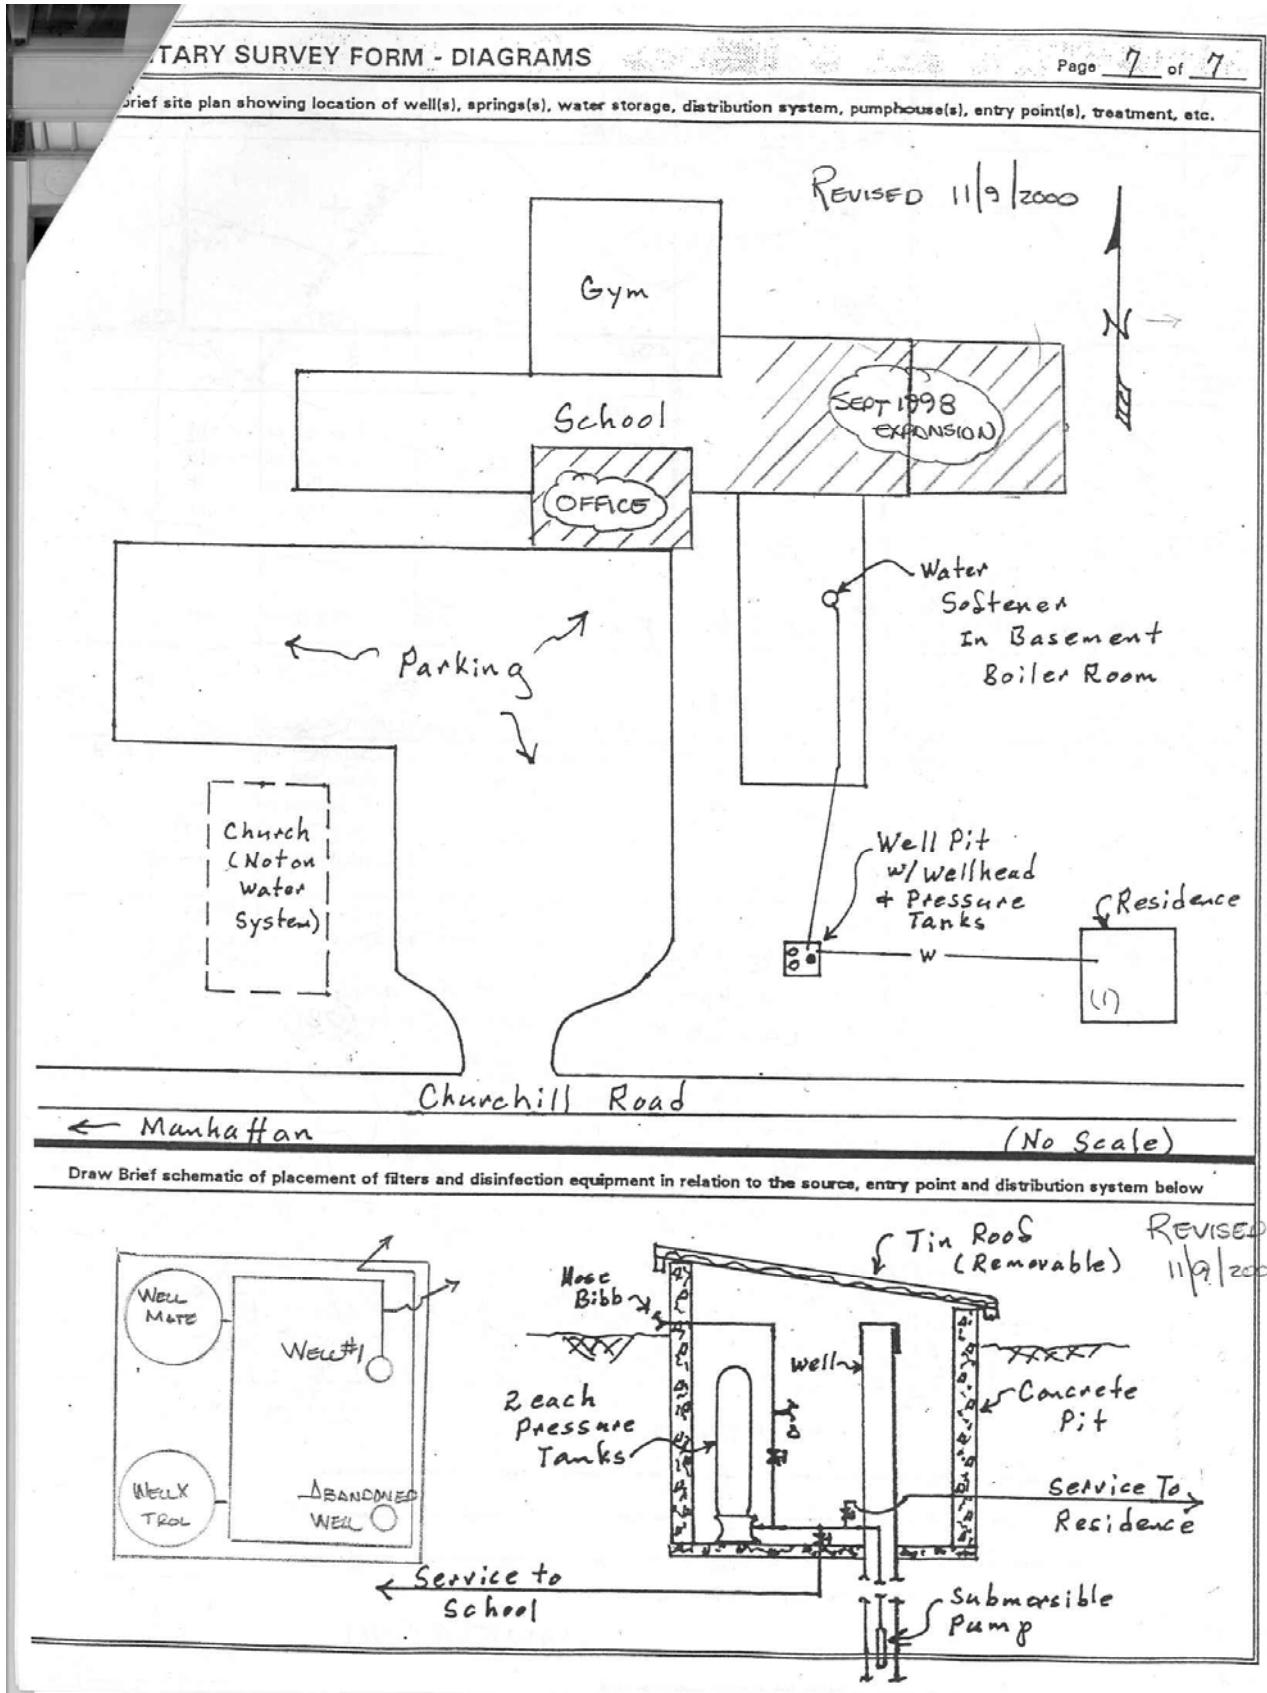 TARY SURVEY FORM - DIAGRAMS
Page 7 of 7
brief site plan showing location of well(s), springs(s), water storage, distribution system, pumphouse(s), entry point(s), treatment, etc.
REVISED 11/9/2000
Gym
N
School
SEPT 1998
EXPANSION
OFFICE
Water
Softener
In Basement
Boiler Room
Parking
Church
(Not on
Water
System)
Well Pit
w/ Wellhead
+ Pressure
Tanks
Residence
W
(1)
Churchill Road
← Manhattan
(No Scale)
Draw Brief schematic of placement of filters and disinfection equipment in relation to the source, entry point and distribution system below
REVISED
11/9/200
Tin Roof
(Removable)
Hose
Bibb
WELL
MATE
WELL #1
Well
2 each
Pressure
Tanks
Concrete
Pit
WELL X
TROL
ABANDONED
WELL
Service To
Residence
Service to
School
Submersible
Pump